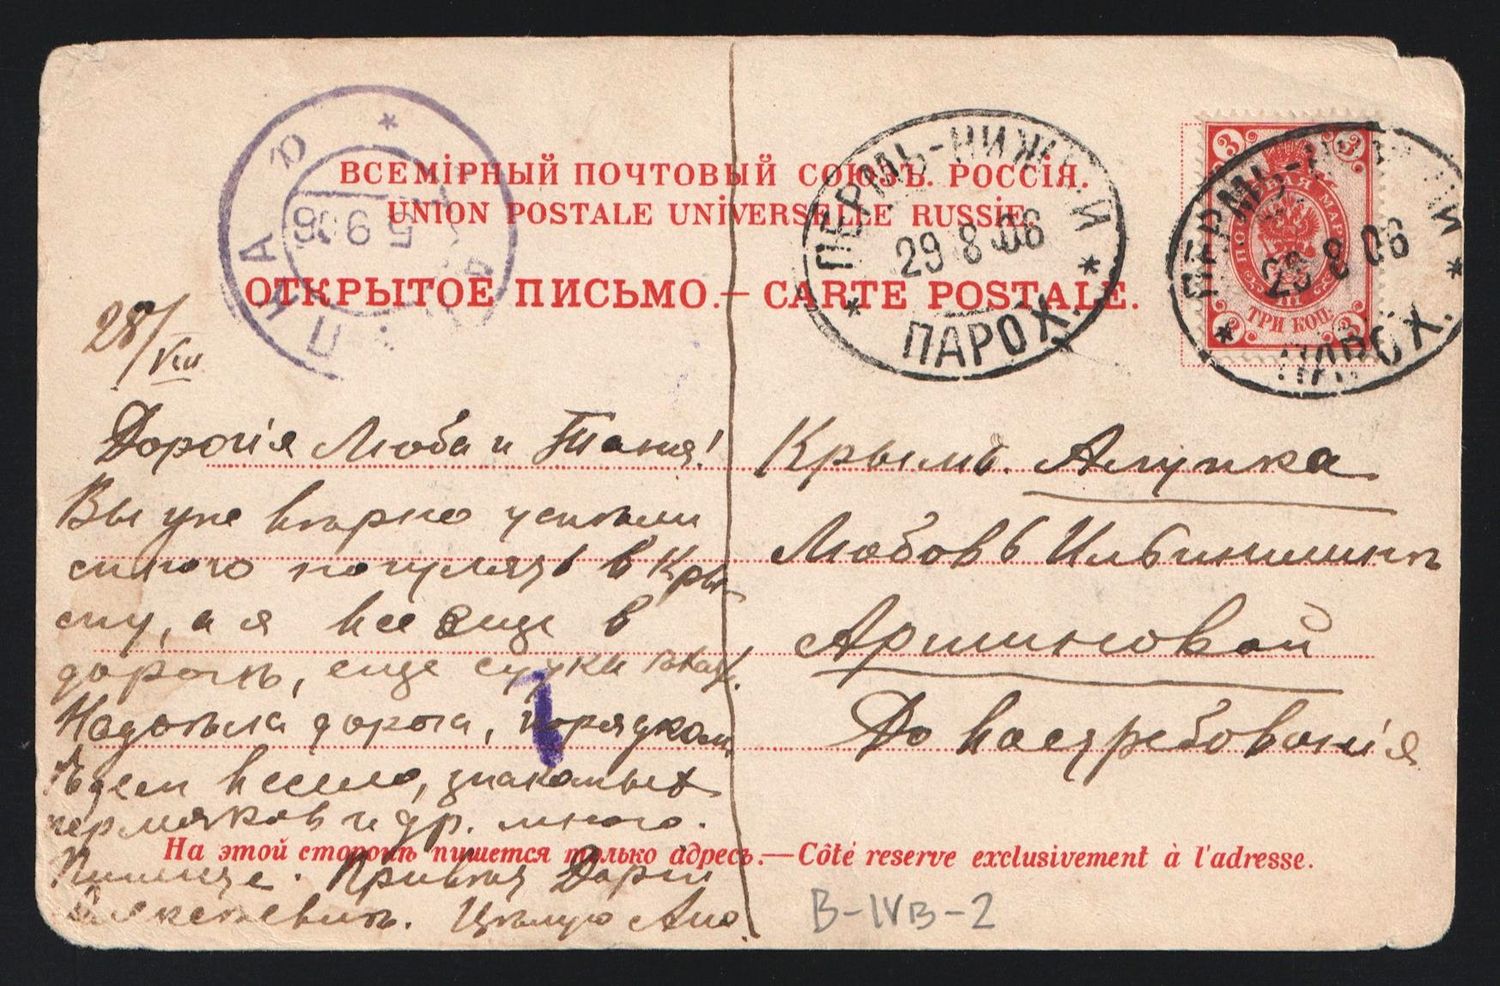 ВСЕМІРНЫЙ ПОЧТОВЫЙ СОЮЗЪ. РОССІЯ.
UNION POSTALE UNIVERSELLE RUSSIE.
ОТКРЫТОЕ ПИСЬМО.—CARTE POSTALE.
5 9 06
ПЕРМЬ-НИЖНІЙ
29 8 06
ПАРОХ.
ПЕРМЬ-НИЖНІЙ
29 8 06
ПАРОХ.
3 3
ПОЧТОВАЯ МАРКА
ТРИ КОП.
3 3
28/VIII
Дорогія Люба и Таня!
Вы уже вѣрно успѣли
много погулять в Кры-
му, а я все еще в
дорогѣ, еще сутки
Надоѣла дорога, порядком
ѣдем весело, знакомых
пермяков и др. много.
Пишите. Привѣт Дарьи
Алексѣевнѣ. Цѣлую
Крымъ. Алупка
Любовь Ильинишнѣ
Аршиновой
До востребованія
На этой сторонѣ пишется только адресъ.—Côté reserve exclusivement à l'adresse.
B-IVB-2